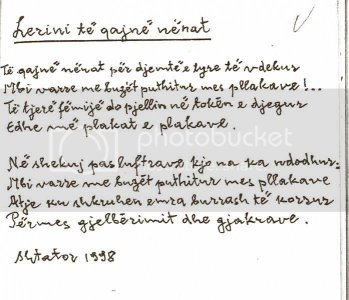 Lerini të qajnë nënat
Të qajnë nënat për djemtë e tyre të vdekur
Mbi varre me buzët puthitur mes pllakave!...
Të tjerë fëmijë do pjellin në tokën e djegur
Edhe më plakat e plakave.
Në shekuj pas luftrave kjo na ka ndodhur:
Mbi varre me buzët puthitur mes pllakave
Atje ku shkruhen emra burrash të korrur
Përmes gjelbërimit dhe gjakrave.
Shtator 1998
photobucket